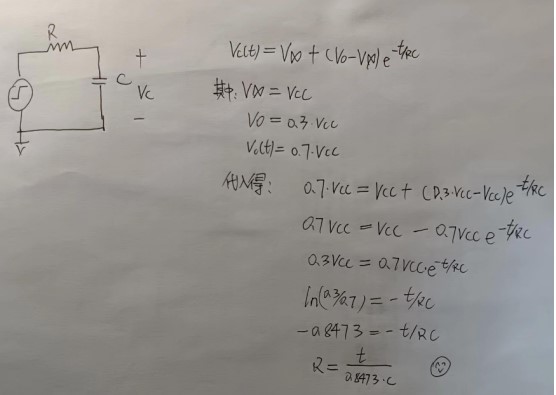 R
C
+
Vc
-
Vc(t) = V∞ + (V0-V∞)e^-t/RC
其中: V∞ = Vcc
V0 = 0.3·Vcc
Vc(t) = 0.7·Vcc
代入得:
0.7·Vcc = Vcc + (0.3·Vcc-Vcc)e^-t/RC
0.7Vcc = Vcc - 0.7Vcc e^-t/RC
0.3Vcc = 0.7Vcc·e^-t/RC
ln(0.3/0.7) = -t/RC
-0.8473 = -t/RC
R = t/0.8473·C